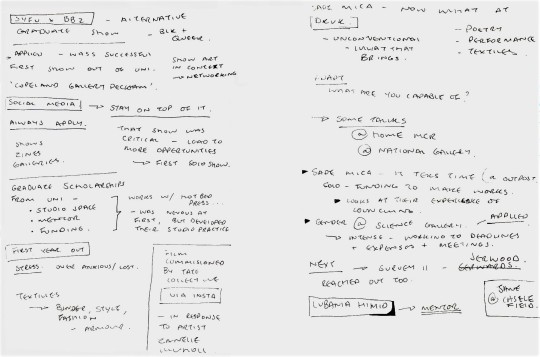 SYFU x BBZ - ALTERNATIVE
GRADUATE SHOW - BLK +
QUEER.
APPLIED - WASS SUCCESSFUL
FIRST SHOW OUT OF UNI.
SHOW ART
IN CONCERT
→ NETWORKING
'COPELAND GALLERY PECKHAM'
SOCIAL MEDIA → STAY ON TOP OF IT.
ALWAYS APPLY.
SHOWS
ZINES
GALLERIES.
THAT SHOW WAS
CRITICAL - LOAD TO
MORE OPPORTUNITIES
→ FIRST SOLO SHOW.
GRADUATE SCHOLARSHIPS
FROM UNI -
• STUDIO SPACE
• MENTOR
• FUNDING.
WORKS W/ HOT BED
PRESS...
- WAS NERVOUS AT
FIRST, BUT DEVELOPED
THEIR STUDIO PRACTICE
FIRST YEAR OUT
STRESS. OVER ANXIOUS / LOST.
TEXTILES
→ BINDER, STYLE,
FASHION
- ARMOUR.
FILM
COMMISSIONED
BY TATE
COLLECTIVE
VIA INSTA
- IN RESPONSE
TO ARTIST
ZANELLE
MUHOLI
SADE MICA - NOW WHAT AT
- UNCONVENTIONAL
- WHAT THAT
BRINGS.
- POETRY
- PERFORMANCE
- TEXTILES.
WHAT ARE YOU CAPABLE OF?
→ SOME TALKS
@ HOME MCR
@ NATIONAL GALLERY.
SADE MICA - IN TEXS TIME @ OUTPOST.
SOLO - FUNDING TO MAKE WORKS.
LOOKS AT THEIR EXPERIENCE OF
GENDER @ SCIENCE GALLERY.
APPLIED
→ INTENSE - WORKING TO DEADLINES
+ EXPENSES + MEETINGS.
NEXT → SURVEY II - JERWOOD.
REACHED OUT TOO.
LUBAINA HIMID → MENTOR
SAVE
@ CASTLE
FIELD.